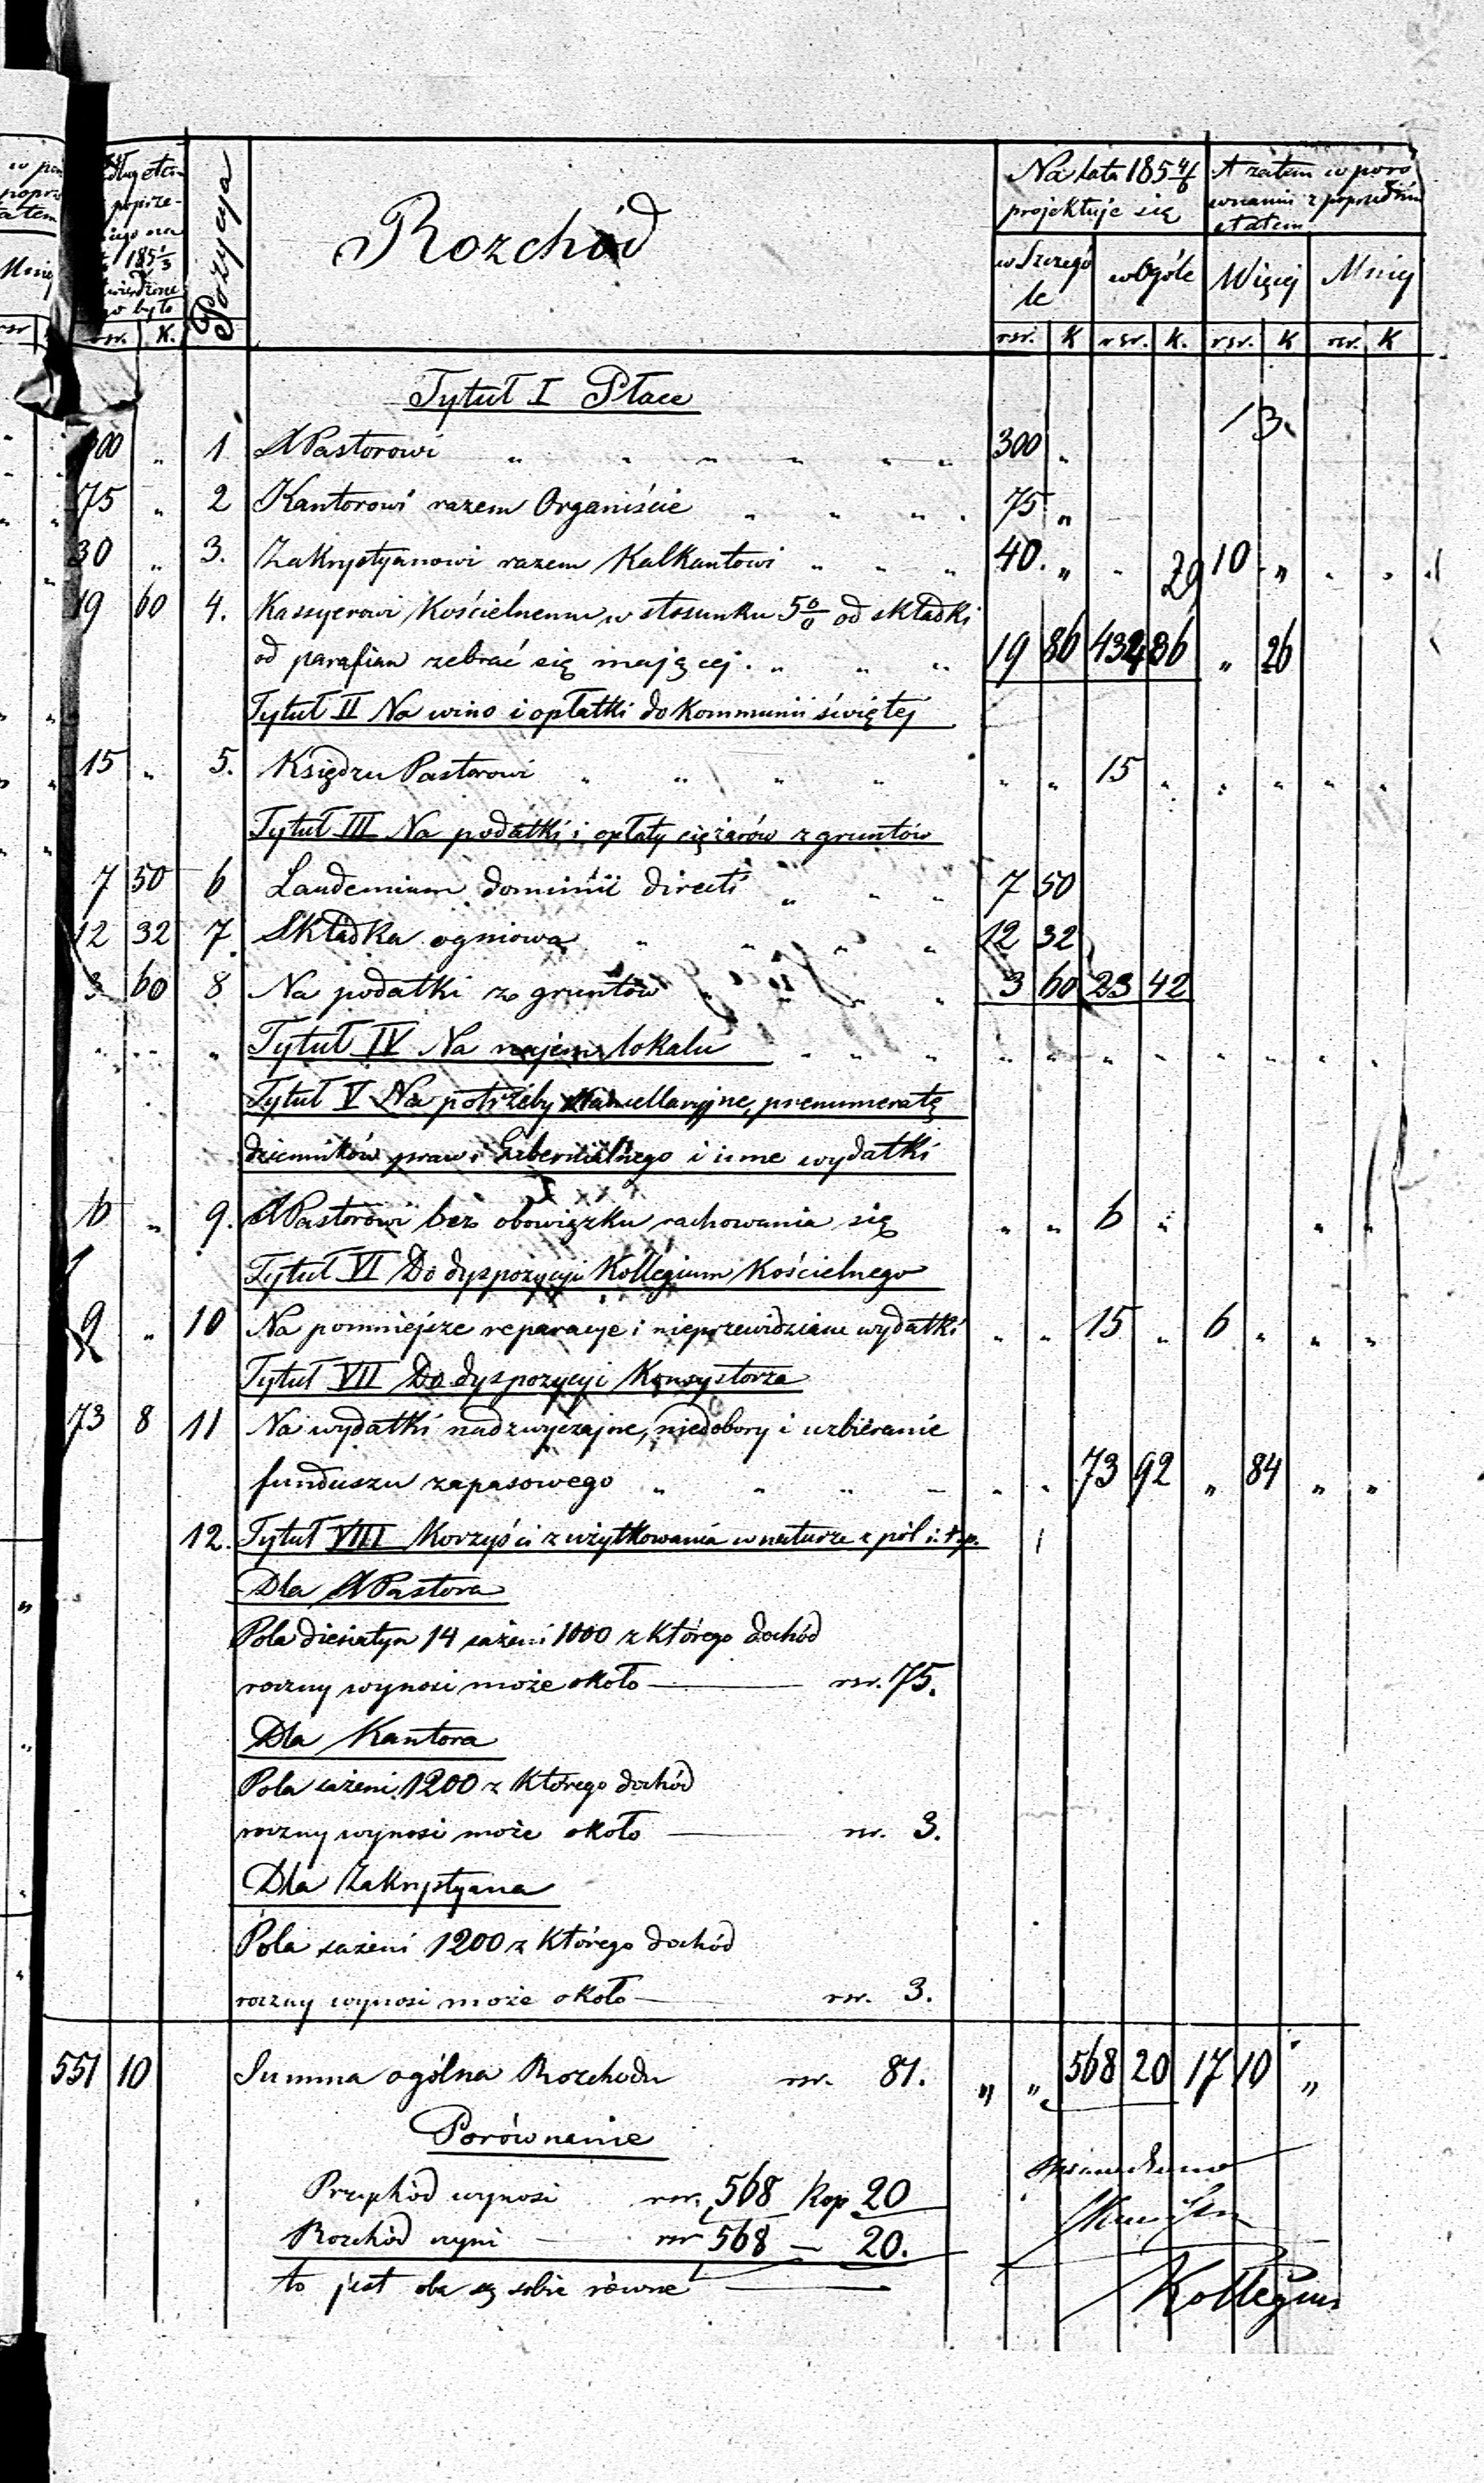 Pozycya
Rozchód
Na lata 185 4/6 projektuje się
A zatem w poró
wnaniu z poprzednim
etatem
w Szczegó
le
w Ogóle
Więcej
Mniej
rsr. K. rsr. K rsr. K. rsr. K rsr. K
Tytuł I Płace
300 " 1 XPastorowi " " " " " " 300 "
75 " 2 Kantorowi razem Organiście " " " " 75 "
30 " 3. Zakrystyanowi razem Kalkantowi " " " 40. " 10 "
19 60 4. Kassyerowi Kościelnemu w stosunku 5 0/0 od składki
od parafian zebrać się mającej. " " " 19 86 434 86 " 26
Tytuł II Na wino i opłatki do Kommunii świętej
15 " 5. Księdzu Pastorowi " " " " " " 15 " " " " "
Tytuł III Na podatki i opłaty ciężarów z gruntów
7 50 6 Laudemium dominii directi " " " 7 50
12 32 7. Składka ogniowa " " " " 12 32
3 60 8 Na podatki z gruntów " " " " 3 60 23 42
" " " Tytuł IV Na najem lokalu " " " " " " " " " " "
Tytuł V Na potrzeby Kancellaryjne, prenumeratę
dzienników praw i Gubernialnego i inne wydatki
6 " 9. XPastorowi bez obowiązku rachowania się " " 6 " " "
Tytuł VI Do dyspozycyi Kollegium Kościelnego
9 " 10 Na pomniejsze reparacye i nieprzewidziane wydatki " " 15 " 6 " " "
Tytuł VII Do dyspozycyi Konsystorza
73 8 11 Na wydatki nadzwyczajne, niedobory i uzbieranie
funduszu zapasowego " " " " " " 73 92 " 84 " "
12. Tytuł VIII Korzyści z użytkowania w naturze z pól i. t. p.
Dla XPastora
Pola diesiatyn 14 sażeni 1000 z którego dochód
roczny wynosi może około rsr. 75.
Dla Kantora
Pola sażeni 1200 z którego dochód
roczny wynosi może około rsr. 3.
Dla Zakrystyana
Pola sażeni 1200 z którego dochód
roczny wynosi może około rsr. 3.
551 10 Summa ogólna Rozchodu rsr. 81. " " 568 20 17 10 "
Porównanie
Przychód wynosi rsr. 568 Kop 20
Rozchód czyni rsr 568 — 20.
to jest oba są sobie równe
Kollegium